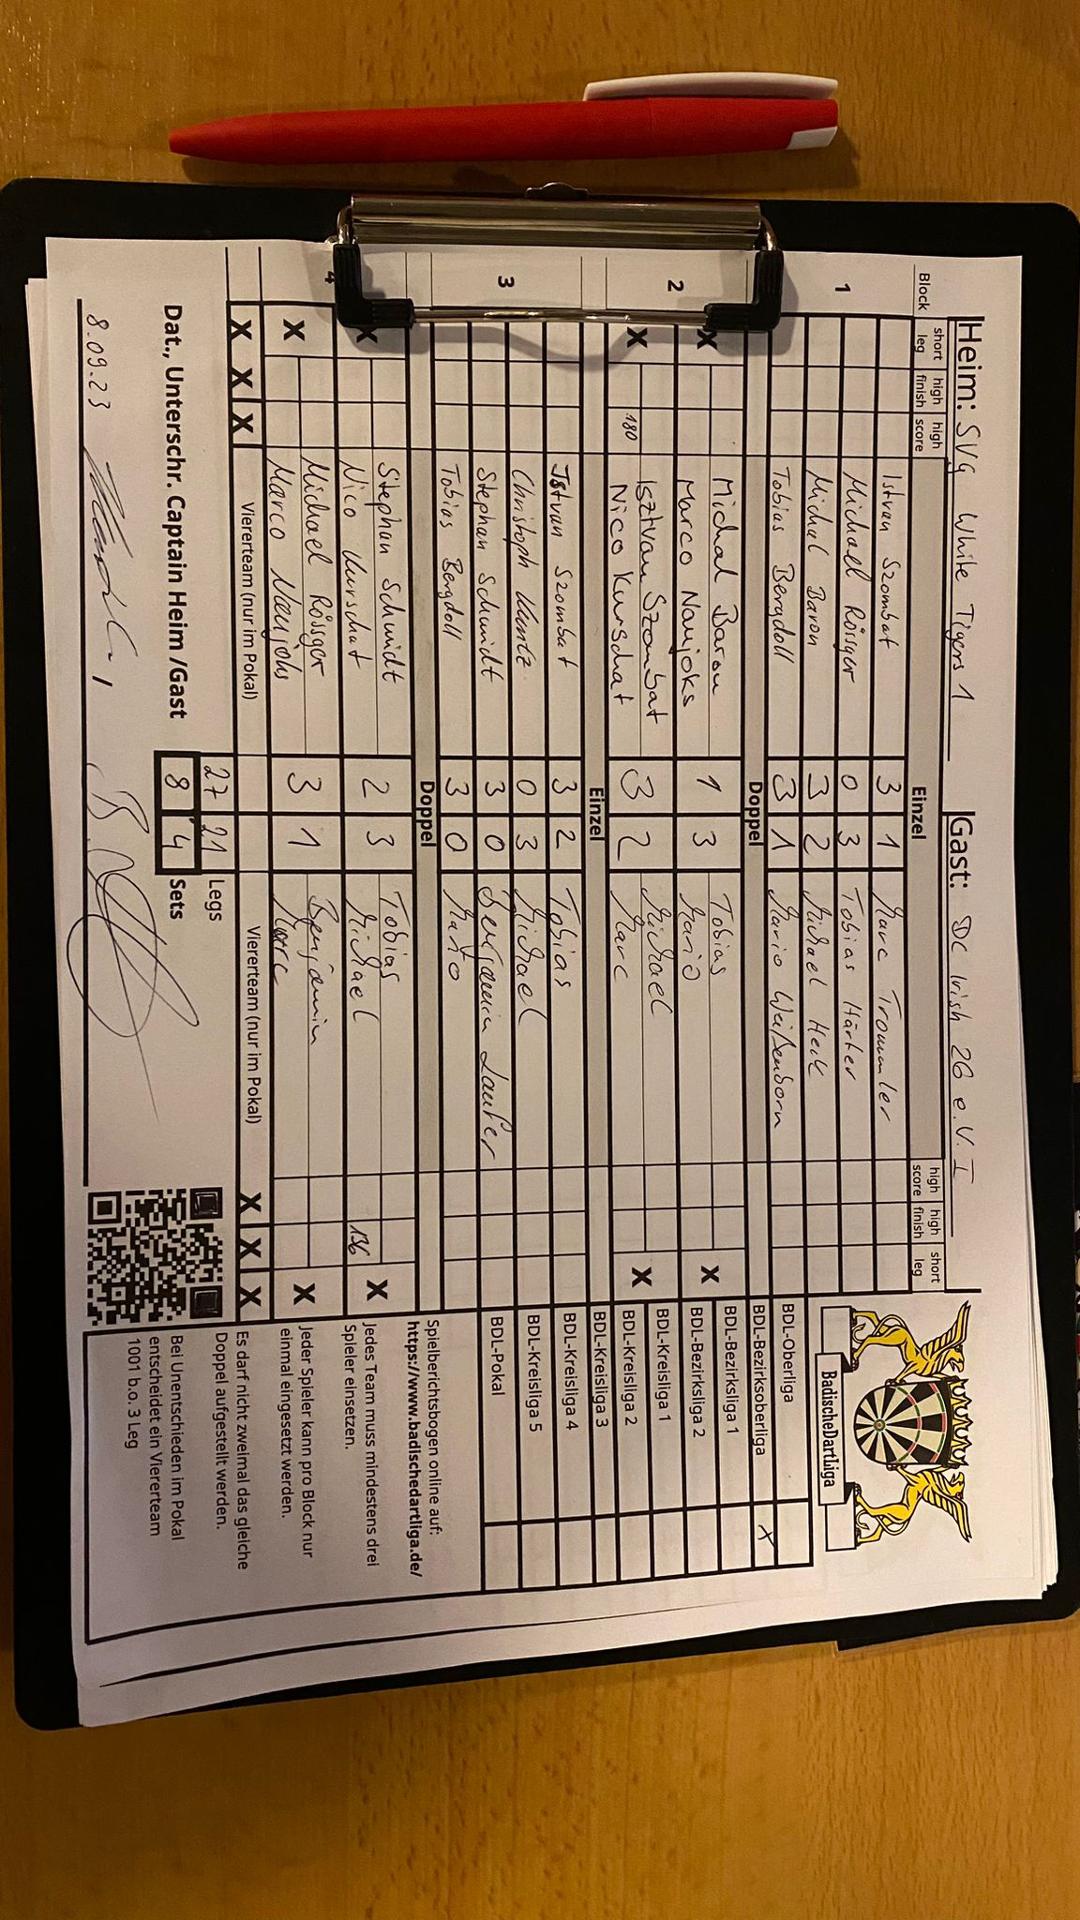 Heim: SVG White Tigers 1 Gast: DC Irish 26 e.V. I
Block short leg high finish high score Einzel high score high finish short leg
1
Istvan Szombat 3 1 Marc Trommler
Michael Rösger 0 3 Tobias Härter
Michal Baron 3 2 Michael Heck
Tobias Bergdoll 3 1 Mario Weißenborn
Doppel
2
X Michal Baron 1 3 Tobias X
Marco Naujoks Mario
X Isztvan Szombat 3 2 Michael X
180 Nico Kurschat Marc
Einzel
3
Istvan Szombat 3 2 Tobias
Christoph Kuntz 0 3 Michael
Stephan Schmidt 3 0 Benjamin Laufer
Tobias Bergdoll 3 0 Mario
Doppel
4
X Stephan Schmidt 2 3 Tobias X
Nico Kurschat Michael 136
X Michael Rösger 3 1 Benjamin X
Marco Naujoks Marc
X X X Viererteam (nur im Pokal) Viererteam (nur im Pokal) X X X
27 21 Legs
Dat., Unterschr. Captain Heim /Gast 8 4 Sets
8.09.23
BadischeDartLiga
BDL-Oberliga
BDL-Bezirksoberliga X
BDL-Bezirksliga 1
BDL-Bezirksliga 2
BDL-Kreisliga 1
BDL-Kreisliga 2
BDL-Kreisliga 3
BDL-Kreisliga 4
BDL-Kreisliga 5
BDL-Pokal
Spielberichtsbogen online auf:
https://www.badischedartliga.de/
Jedes Team muss mindestens drei
Spieler einsetzen.
Jeder Spieler kann pro Block nur
einmal eingesetzt werden.
Es darf nicht zweimal das gleiche
Doppel aufgestellt werden.
Bei Unentschieden im Pokal
entscheidet ein Viererteam
1001 b.o. 3 Leg